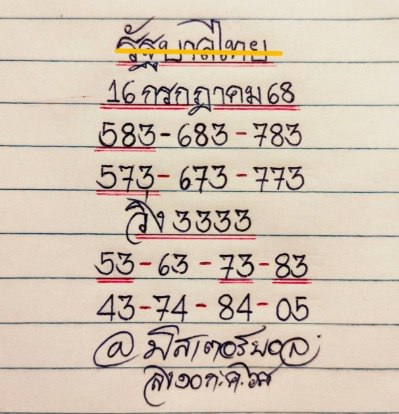 รัฐบาลไทย
16 กรกฎาคม 68
583-683-783
573-673-773
วิ่ง 3333
53-63-73-83
43-74-84-05
@ มิสเตอร์บอล